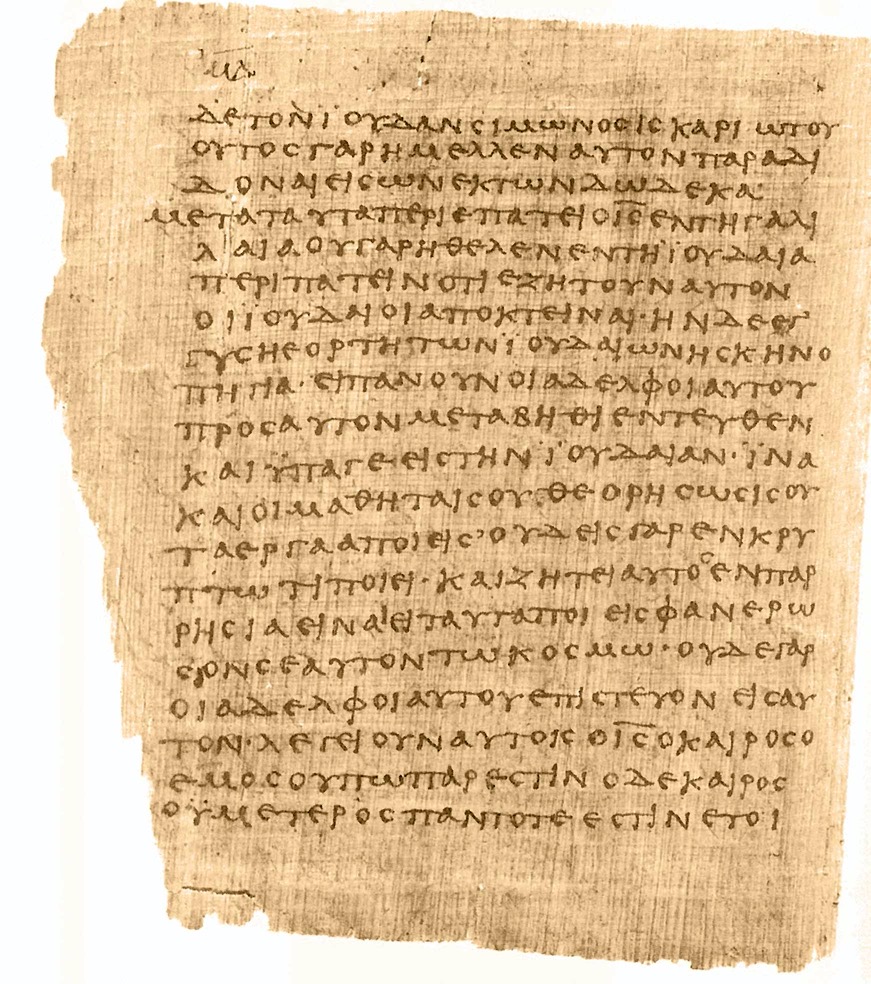 μδ
δε τον ϊουδαν σιμωνος ισκαριωτου
ουτος γαρ ημελλεν αυτον παραδι
δοναι εις ων εκ των δωδεκα
μετα ταυτα περιεπατει ο ι̅ς̅ εν τη γαλι
λαια ου γαρ ηθελεν εν τη ϊουδαια
περιπατειν οτι εζητουν αυτον
οι ϊουδαιοι αποκτειναι· ην δε εγ
γυς η εορτη των ϊουδαιων η σκηνο
πηγια· ειπαν ουν οι αδελφοι αυτου
προς αυτον μεταβηθι εντευθεν
και ϋπαγε εις την ϊουδαιαν· ϊνα
και οι μαθηται σου θεορησωσι σου
τα εργα α ποιεις’ ουδεις γαρ εν κρυ
πτω τι ποιει· και ζητει αυτος εν παρ
ρησια ειναι ει ταυτα ποιεις φανερω
σον σεαυτον τω κοσμω· ουδε γαρ
οι αδελφοι αυτου επιστευον εις αυ
τον· λεγει ουν αυτοις ο ι̅ς̅ ο καιρος ο
εμος ουπω παρεστιν ο δε καιρος
ο ϋμετερος παντοτε εστιν ετοι